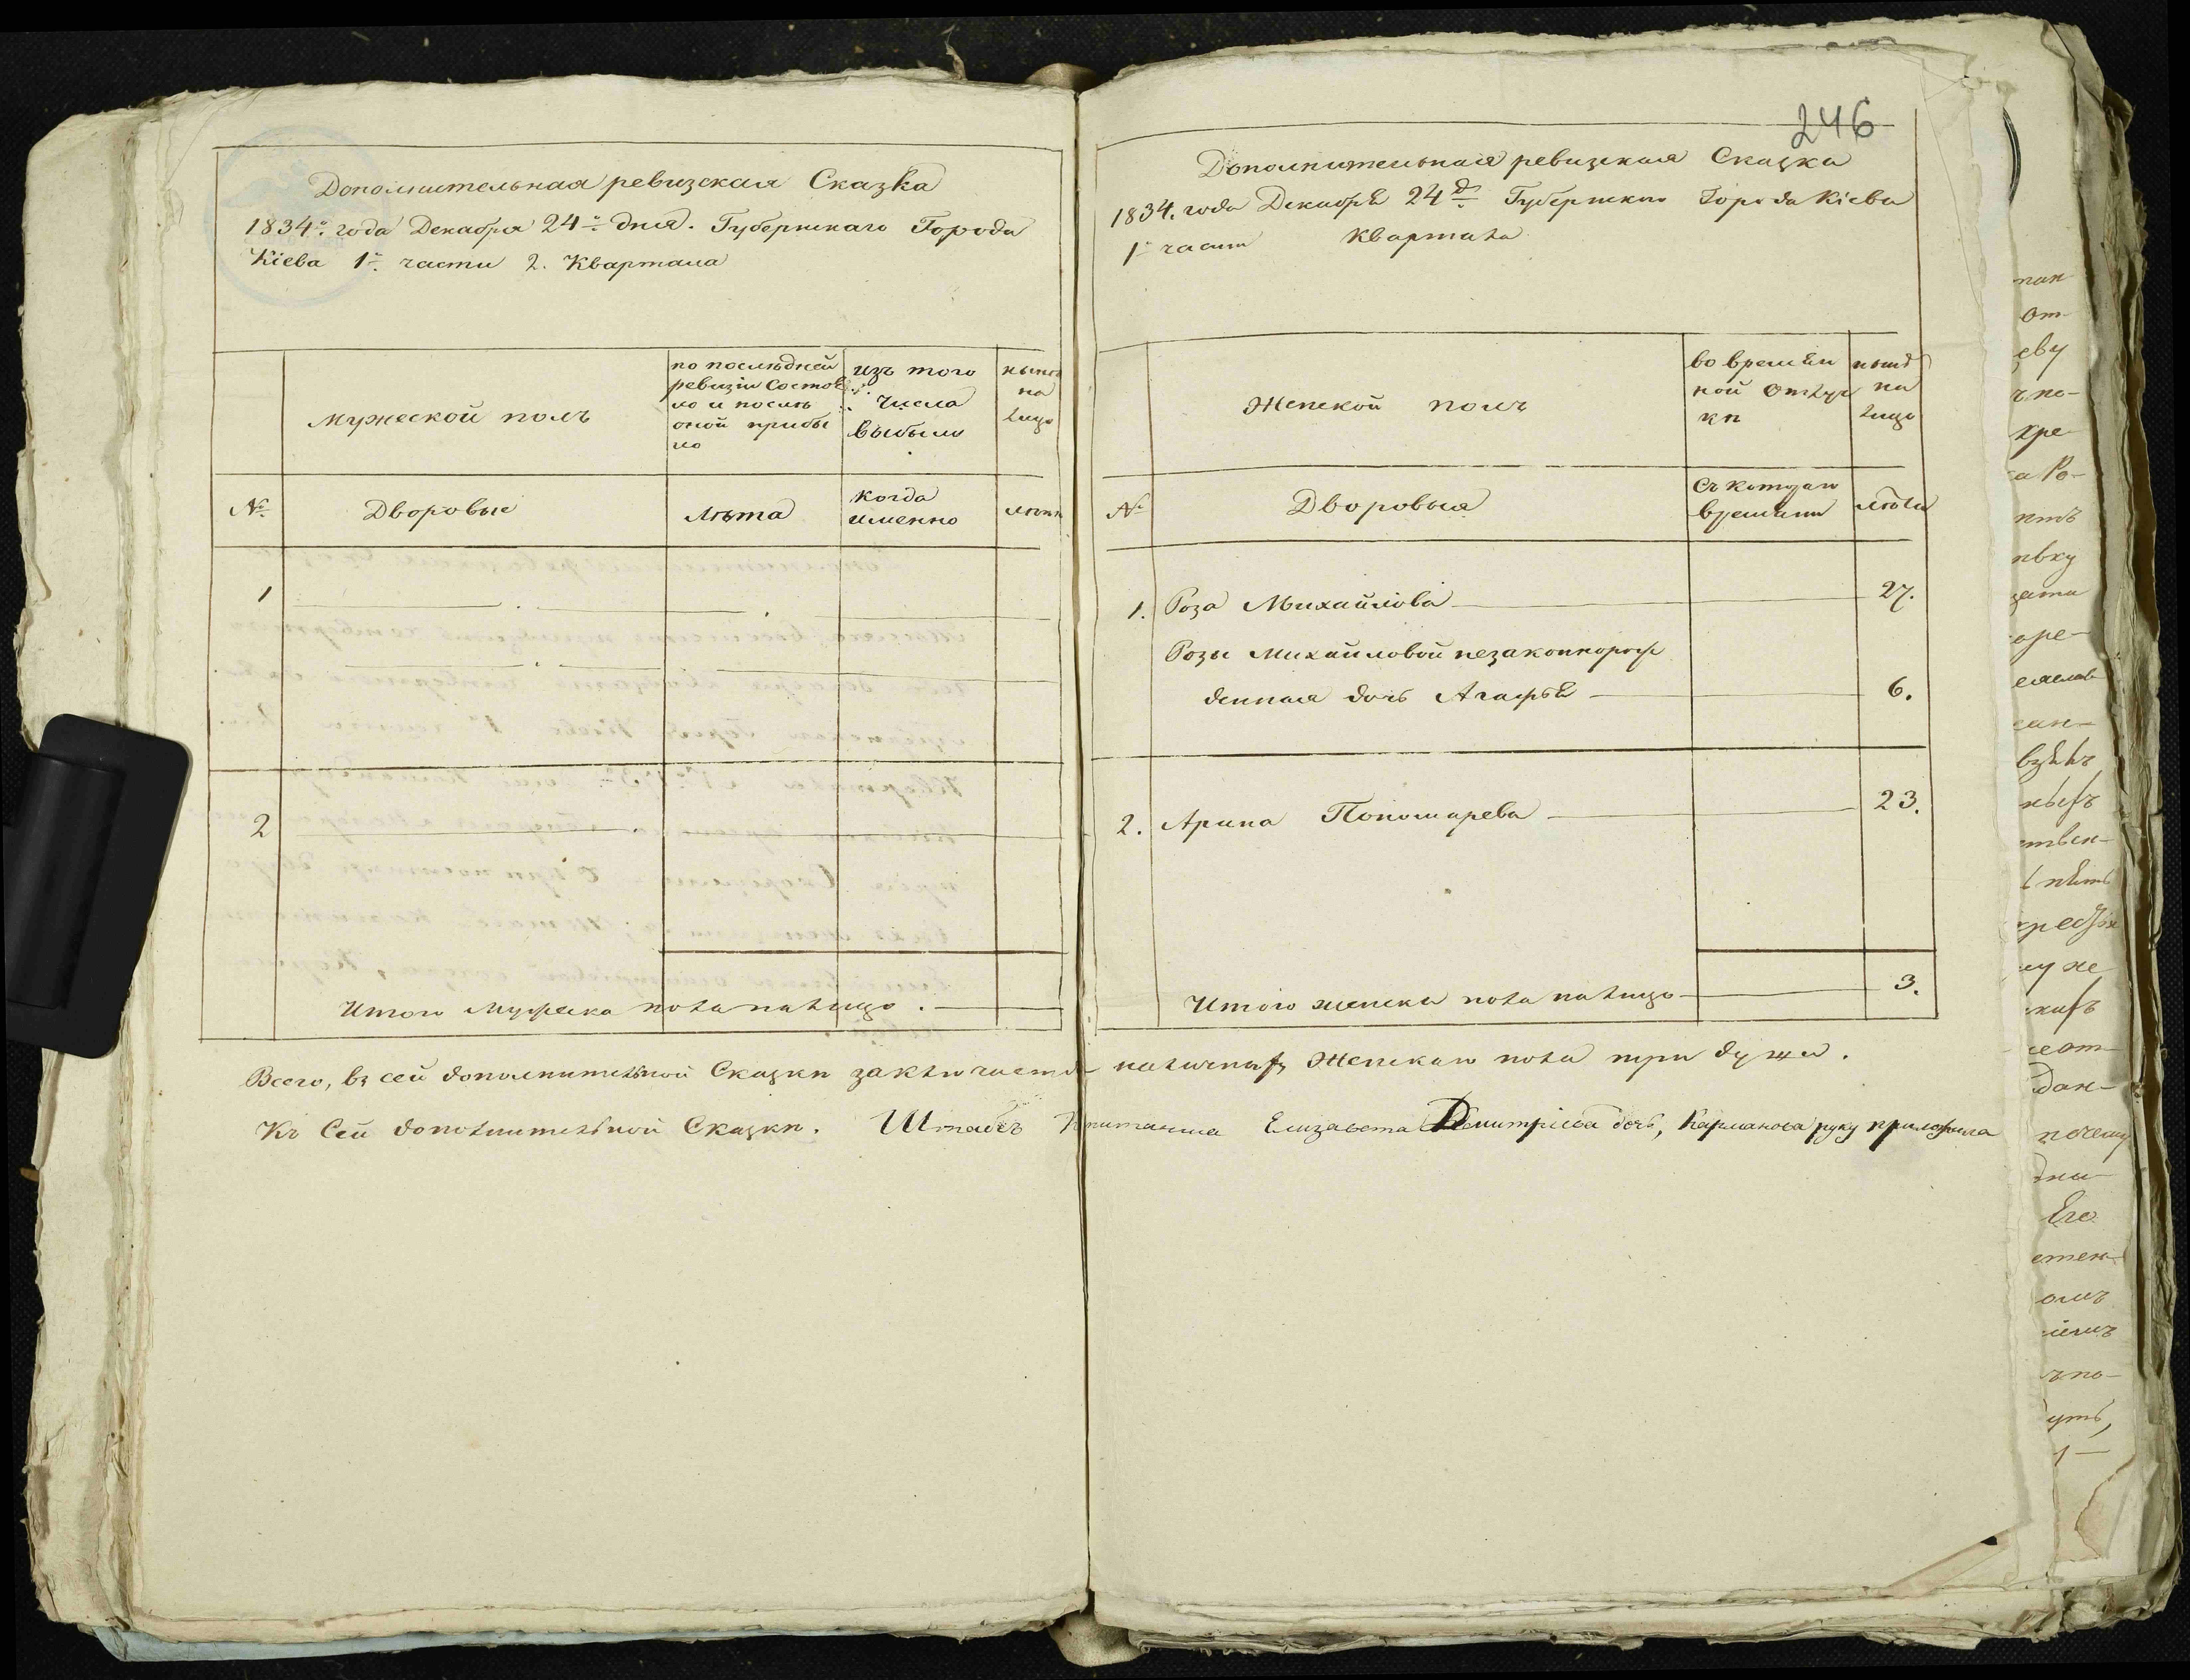 Дополнительная ревизская Сказка
1834го года Декабря 24го дня. Губернскаго Города
Кіева 1й части 2. Квартала
мужеской полъ
по послѣдней
ревизіи Состоя
ло и послѣ
оной прибы
ло
изъ того
числа
выбыло
нынѣ
на
лицо
№
Дворовые
лѣта
когда
именно
лѣта
1
2
Итого Мужеска пола налицо .
246
Дополнительная ревизская Сказка
1834. года Декабря 24 д. Губернскаго Города Кіева
1й части Квартала
Женской полъ
во времѣн
ной отлуч
ки
нынѣ
на
лицо
№
Дворовыя
Съ котораго
времени
лѣта
1. Роза Михайлова 27.
Розы Михайловой незаконнорож
денная дочь Агафья 6.
2. Арина Пономарева 23.
Итого женска пола налицо 3.
Всего, въ сей дополнительной Сказки заключается наличныхъ Женскаго пола три души.
Къ Сей дополнительной Сказки. Штабсъ Капитанша Елизавета Дмитріева дочь, Карманова руку приложила
пан
От-
еву
ъ по-
кре-
нтъ
зати
ствен-
дан-
почему
Его
уть,